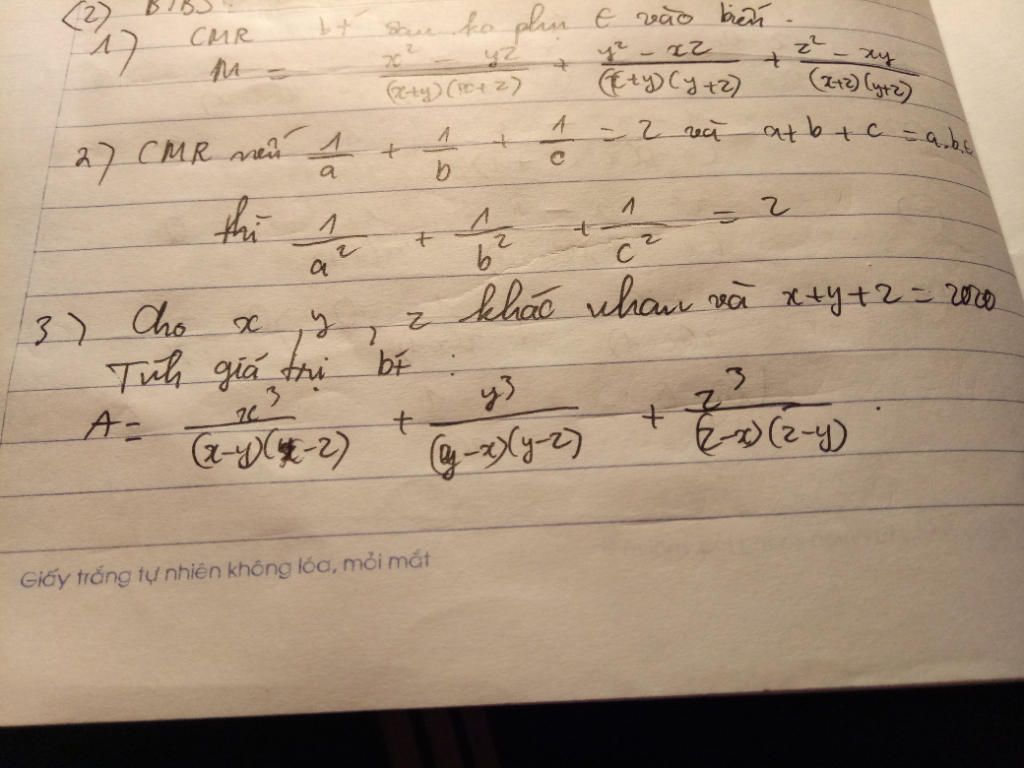 (2) BTBS:
1) CMR bt sau ko phụ ∈ vào biến.
M = \frac{x^2 - yz}{(x+y)(x+z)} + \frac{y^2 - xz}{(x+y)(y+z)} + \frac{z^2 - xy}{(x+z)(y+z)}
2) CMR nếu \frac{1}{a} + \frac{1}{b} + \frac{1}{c} = 2 và a+b+c = a.b.c
thì \frac{1}{a^2} + \frac{1}{b^2} + \frac{1}{c^2} = 2
3) Cho x, y, z khác nhau và x+y+z = 2020
Tính giá trị bt :
A = \frac{x^3}{(x-y)(x-z)} + \frac{y^3}{(y-x)(y-z)} + \frac{z^3}{(z-x)(z-y)} .
Giấy trắng tự nhiên không lóa, mỏi mắt